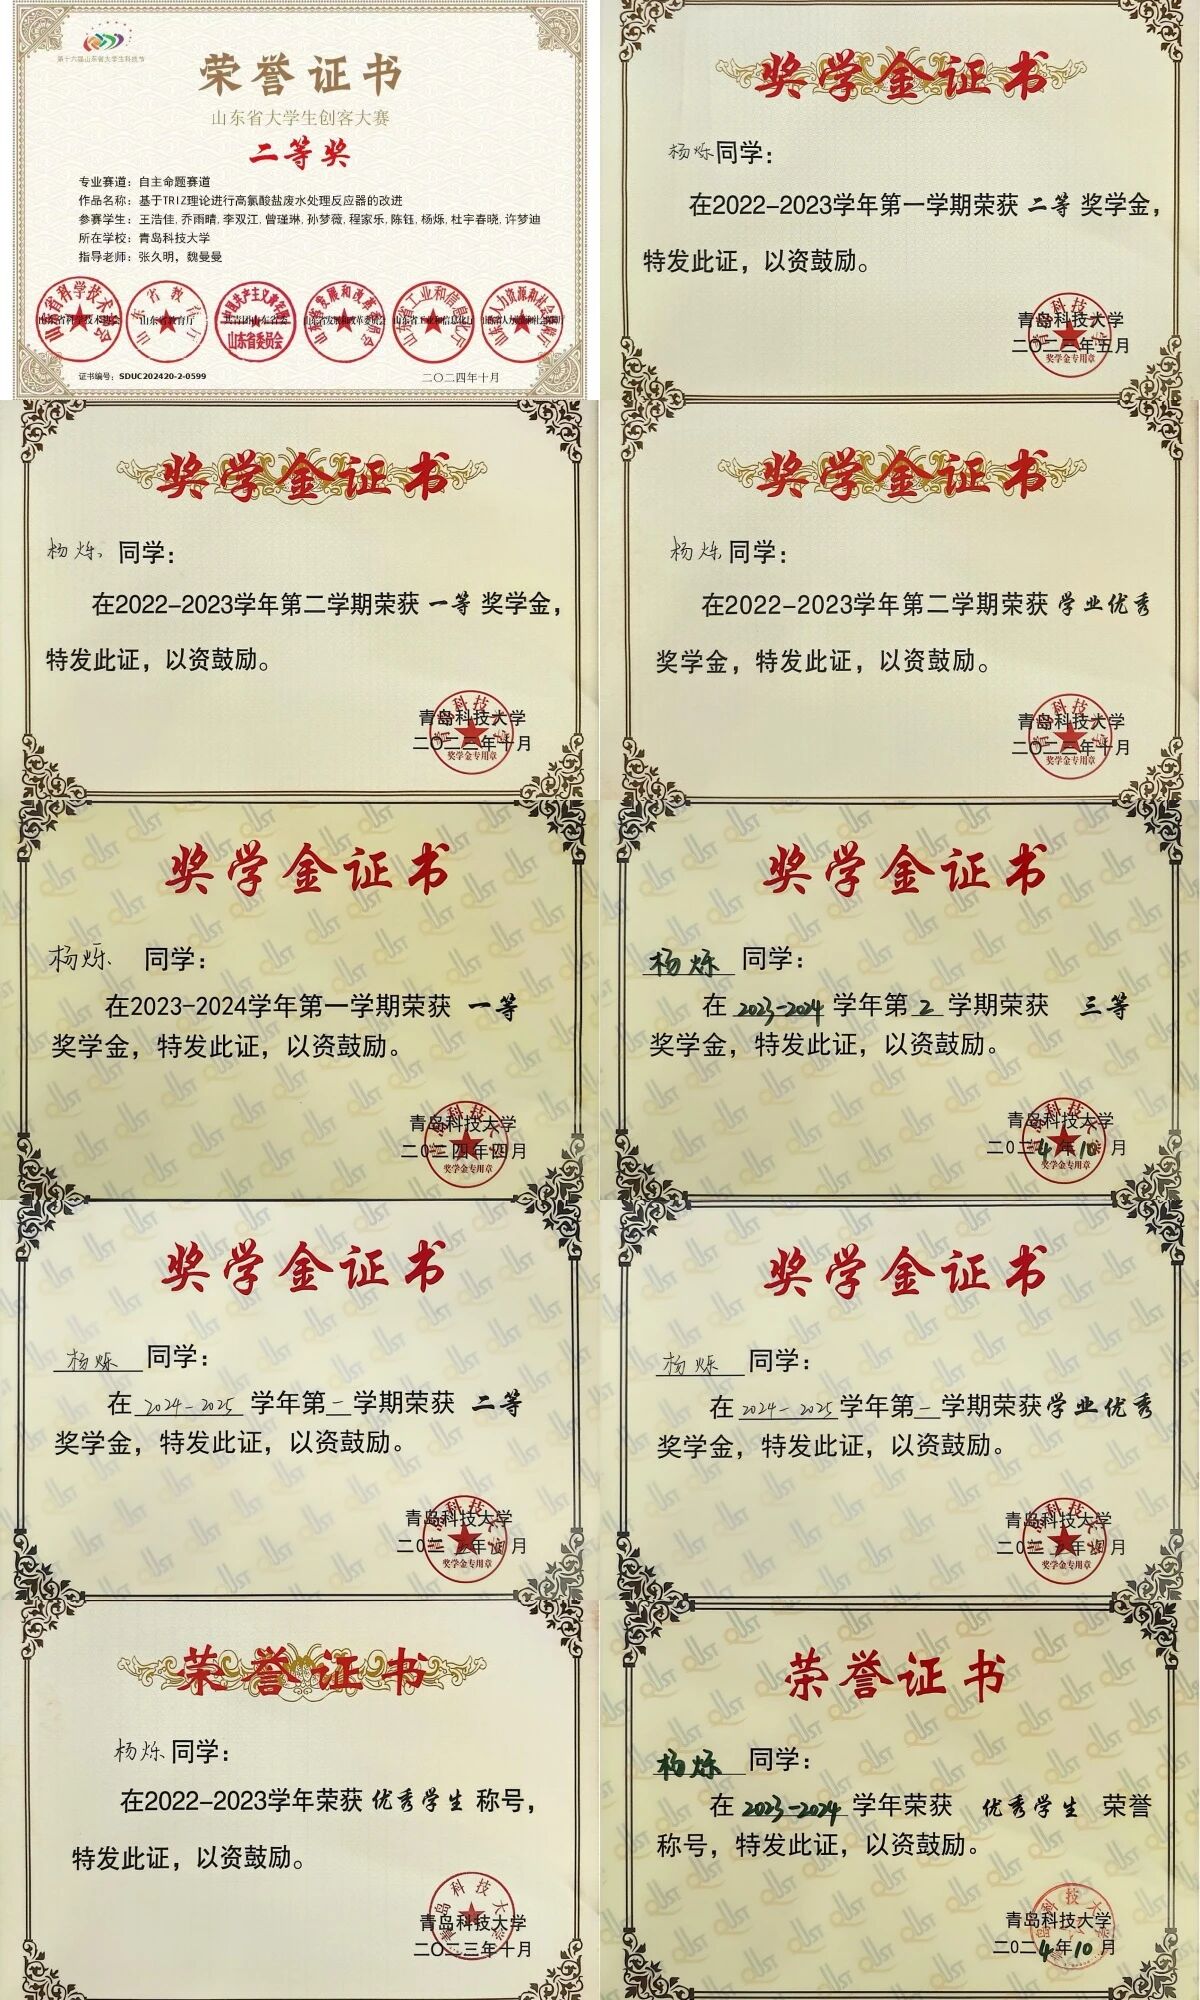 第十六届山东省大学生科技节
荣誉证书
山东省大学生创客大赛
二等奖
专业赛道：自主命题赛道
作品名称：基于TRIZ理论进行高氯酸盐废水处理反应器的改进
参赛学生：王浩佳, 乔雨晴, 李双江, 曾瑾琳, 孙梦薇, 程家乐, 陈钰, 杨烁, 杜宇春晓, 许梦迪
所在学校：青岛科技大学
指导老师：张久明，魏曼曼
山东省科学技术协会
山东省教育厅
共青团山东省委
山东省委员会
山东省发展和改革委员会
山东省工业和信息化厅
山东省人力资源和社会保障厅
证书编号：SDUC202420-2-0599
二〇二四年十月
奖学金证书
杨烁同学：
在2022-2023学年第一学期荣获 二等 奖学金，
特发此证，以资鼓励。
青岛科技大学
二〇二三年五月
奖学金专用章
奖学金证书
杨烁 同学：
在2022-2023学年第二学期荣获 一等 奖学金，
特发此证，以资鼓励。
青岛科技大学
二〇二三年十月
奖学金专用章
奖学金证书
杨烁 同学：
在2022-2023学年第二学期荣获 学业优秀
奖学金，特发此证，以资鼓励。
青岛科技大学
二〇二三年十月
奖学金专用章
奖学金证书
杨烁 同学：
在2023-2024学年第一学期荣获 一等
奖学金，特发此证，以资鼓励。
青岛科技大学
二〇二四年四月
奖学金专用章
奖学金证书
杨烁 同学：
在 2023-2024 学年第 2 学期荣获 三等
奖学金，特发此证，以资鼓励。
青岛科技大学
二〇二4年10月
奖学金专用章
奖学金证书
杨烁 同学：
在 2024-2025 学年第一学期荣获 二等
奖学金，特发此证，以资鼓励。
青岛科技大学
奖学金专用章
奖学金证书
杨烁 同学：
在 2024-2025 学年第一学期荣获学业优秀
奖学金，特发此证，以资鼓励。
青岛科技大学
奖学金专用章
荣誉证书
杨烁 同学：
在2022-2023学年荣获 优秀学生 称号，
特发此证，以资鼓励。
青岛科技大学
二〇二三年十月
荣誉证书
杨烁 同学：
在 2023-2024 学年荣获 优秀学生 荣誉
称号，特发此证，以资鼓励。
青岛科技大学
二〇二4年10月